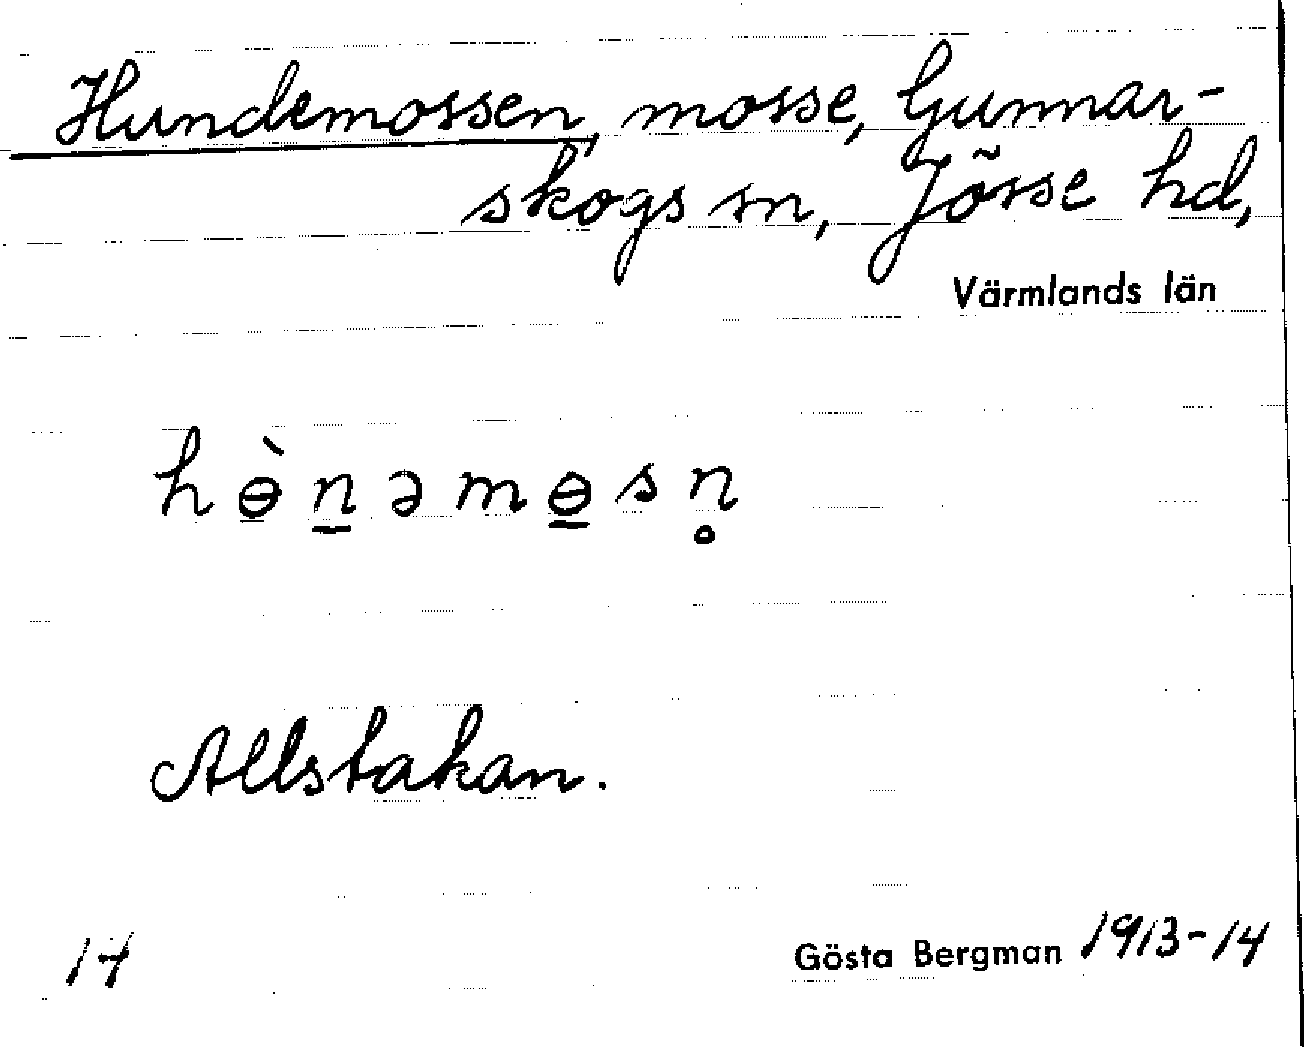 Hundemossen, mosse, Gunnar-
skogs sn, Jösse hd,
Värmlands län
hɵ̱̀ṉəmɵ̱sn̥
Allstakan.
14
Gösta Bergman 1913-14